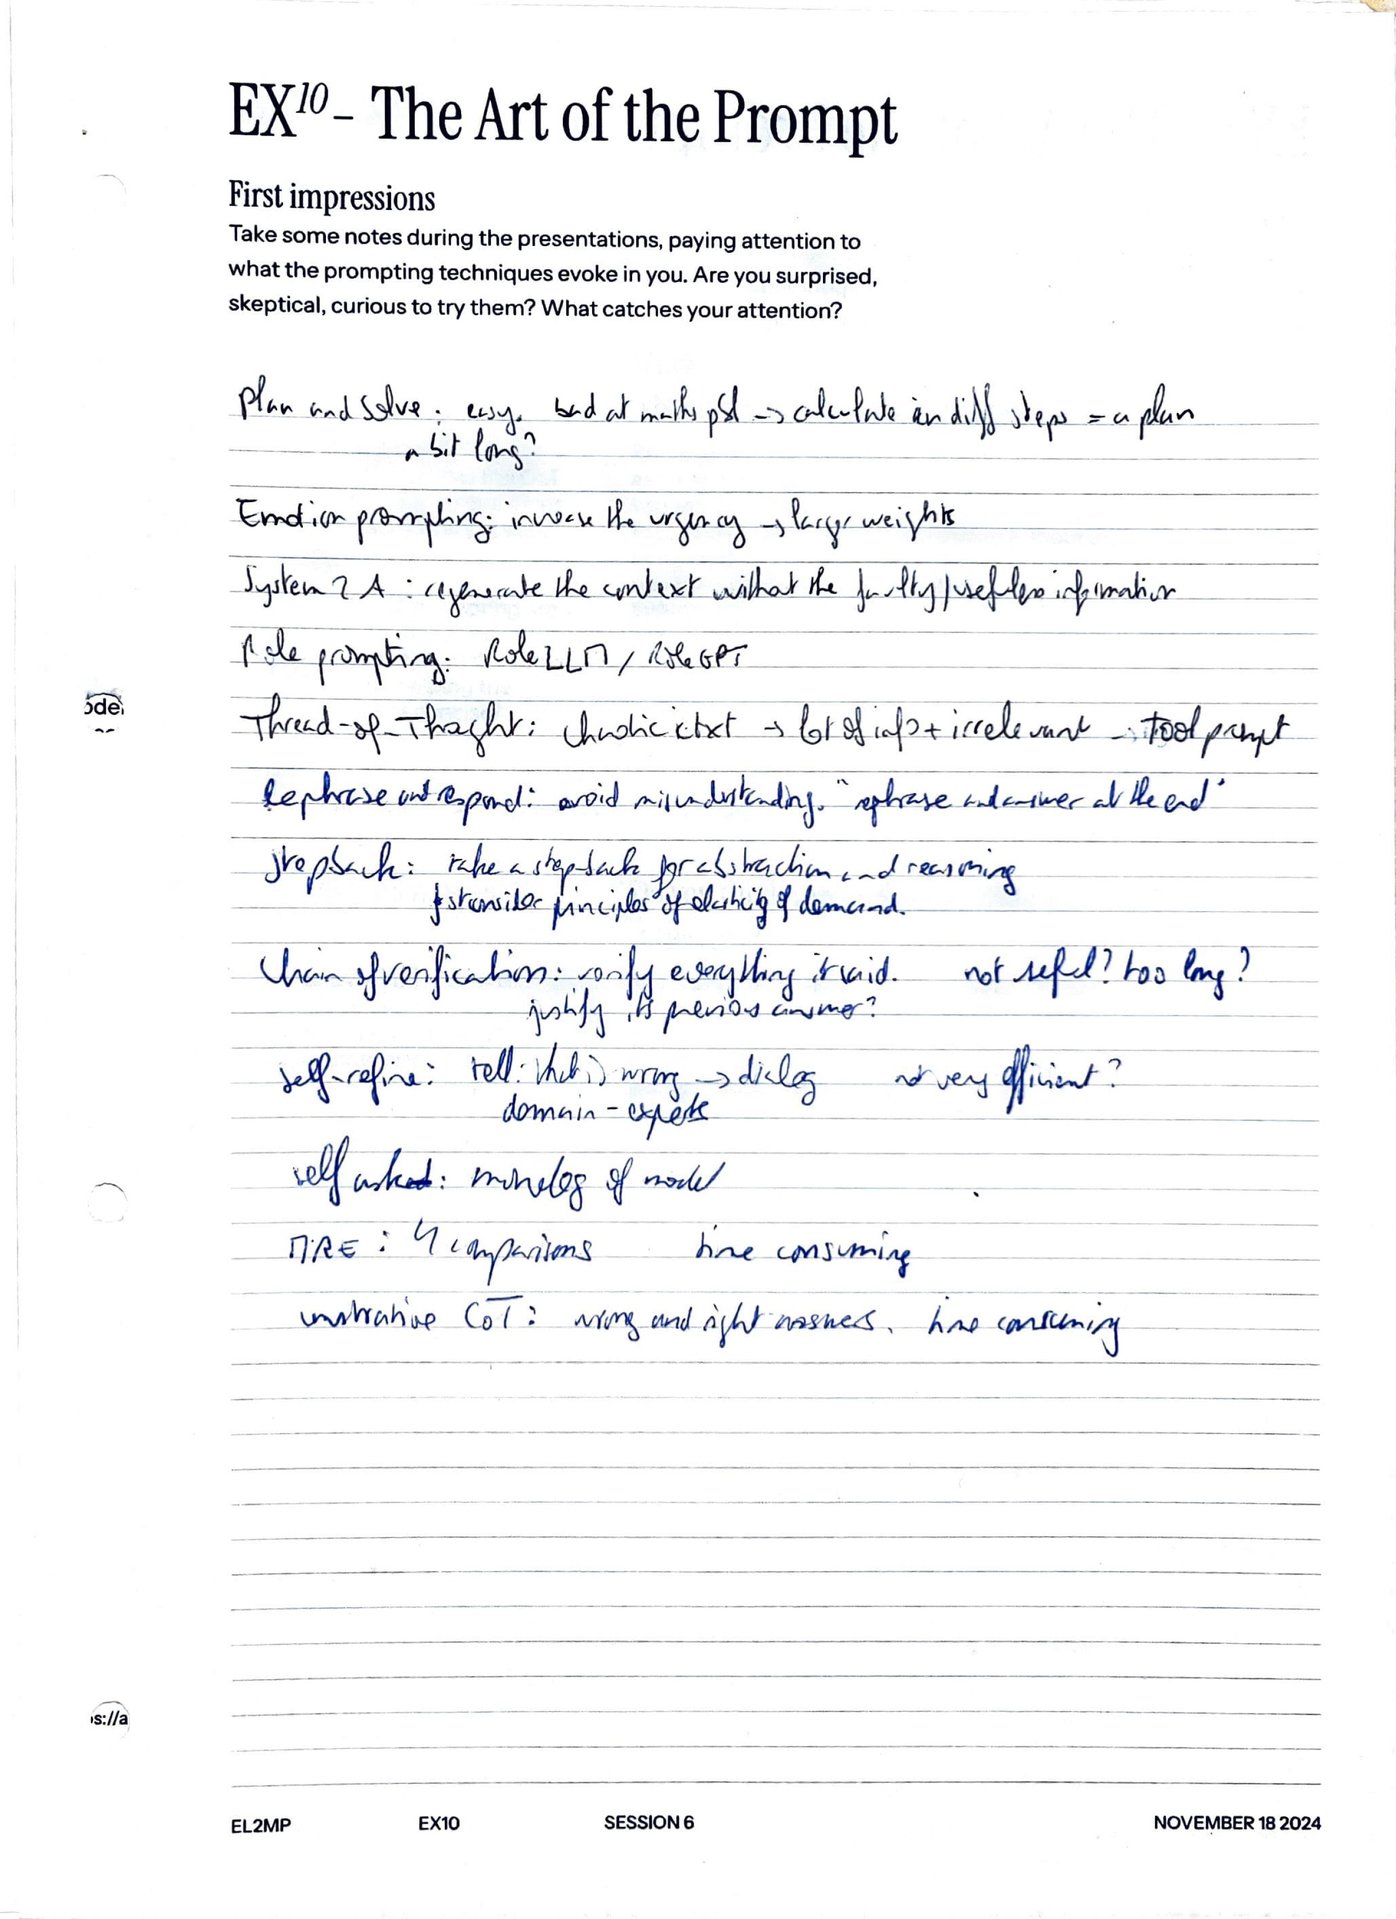 EX10 – The Art of the Prompt
First impressions
Take some notes during the presentations, paying attention to
what the prompting techniques evoke in you. Are you surprised,
skeptical, curious to try them? What catches your attention?
Plan and Solve: easy. bad at maths → calculate in diff steps = a plan
a bit long?
Emotion prompting: increase the urgency → larger weights
System 2 A : regenerate the context without the faulty/useless information
Role prompting: RoleLLM / RoleGPT
Thread-of-Thoght: chaotic ctxt → lot of info + irrelevant → Tool prompt
Rephrase and respond: avoid misunderstanding. "rephrase and answer at the end"
Stepback: take a step back for abstraction and reasoning
principles of elasticity of demand.
Chain of verification: verify everything it said. not useful? too long?
justify its previous answer?
self-refine: tell: what is wrong → dialog not very efficient?
domain-experts
self asked: monolog of model
MRE: 4 comparisons time consuming
CoT: wrong and right answers. time consuming
ode
s://a
EL2MP EX10 SESSION 6 NOVEMBER 18 2024